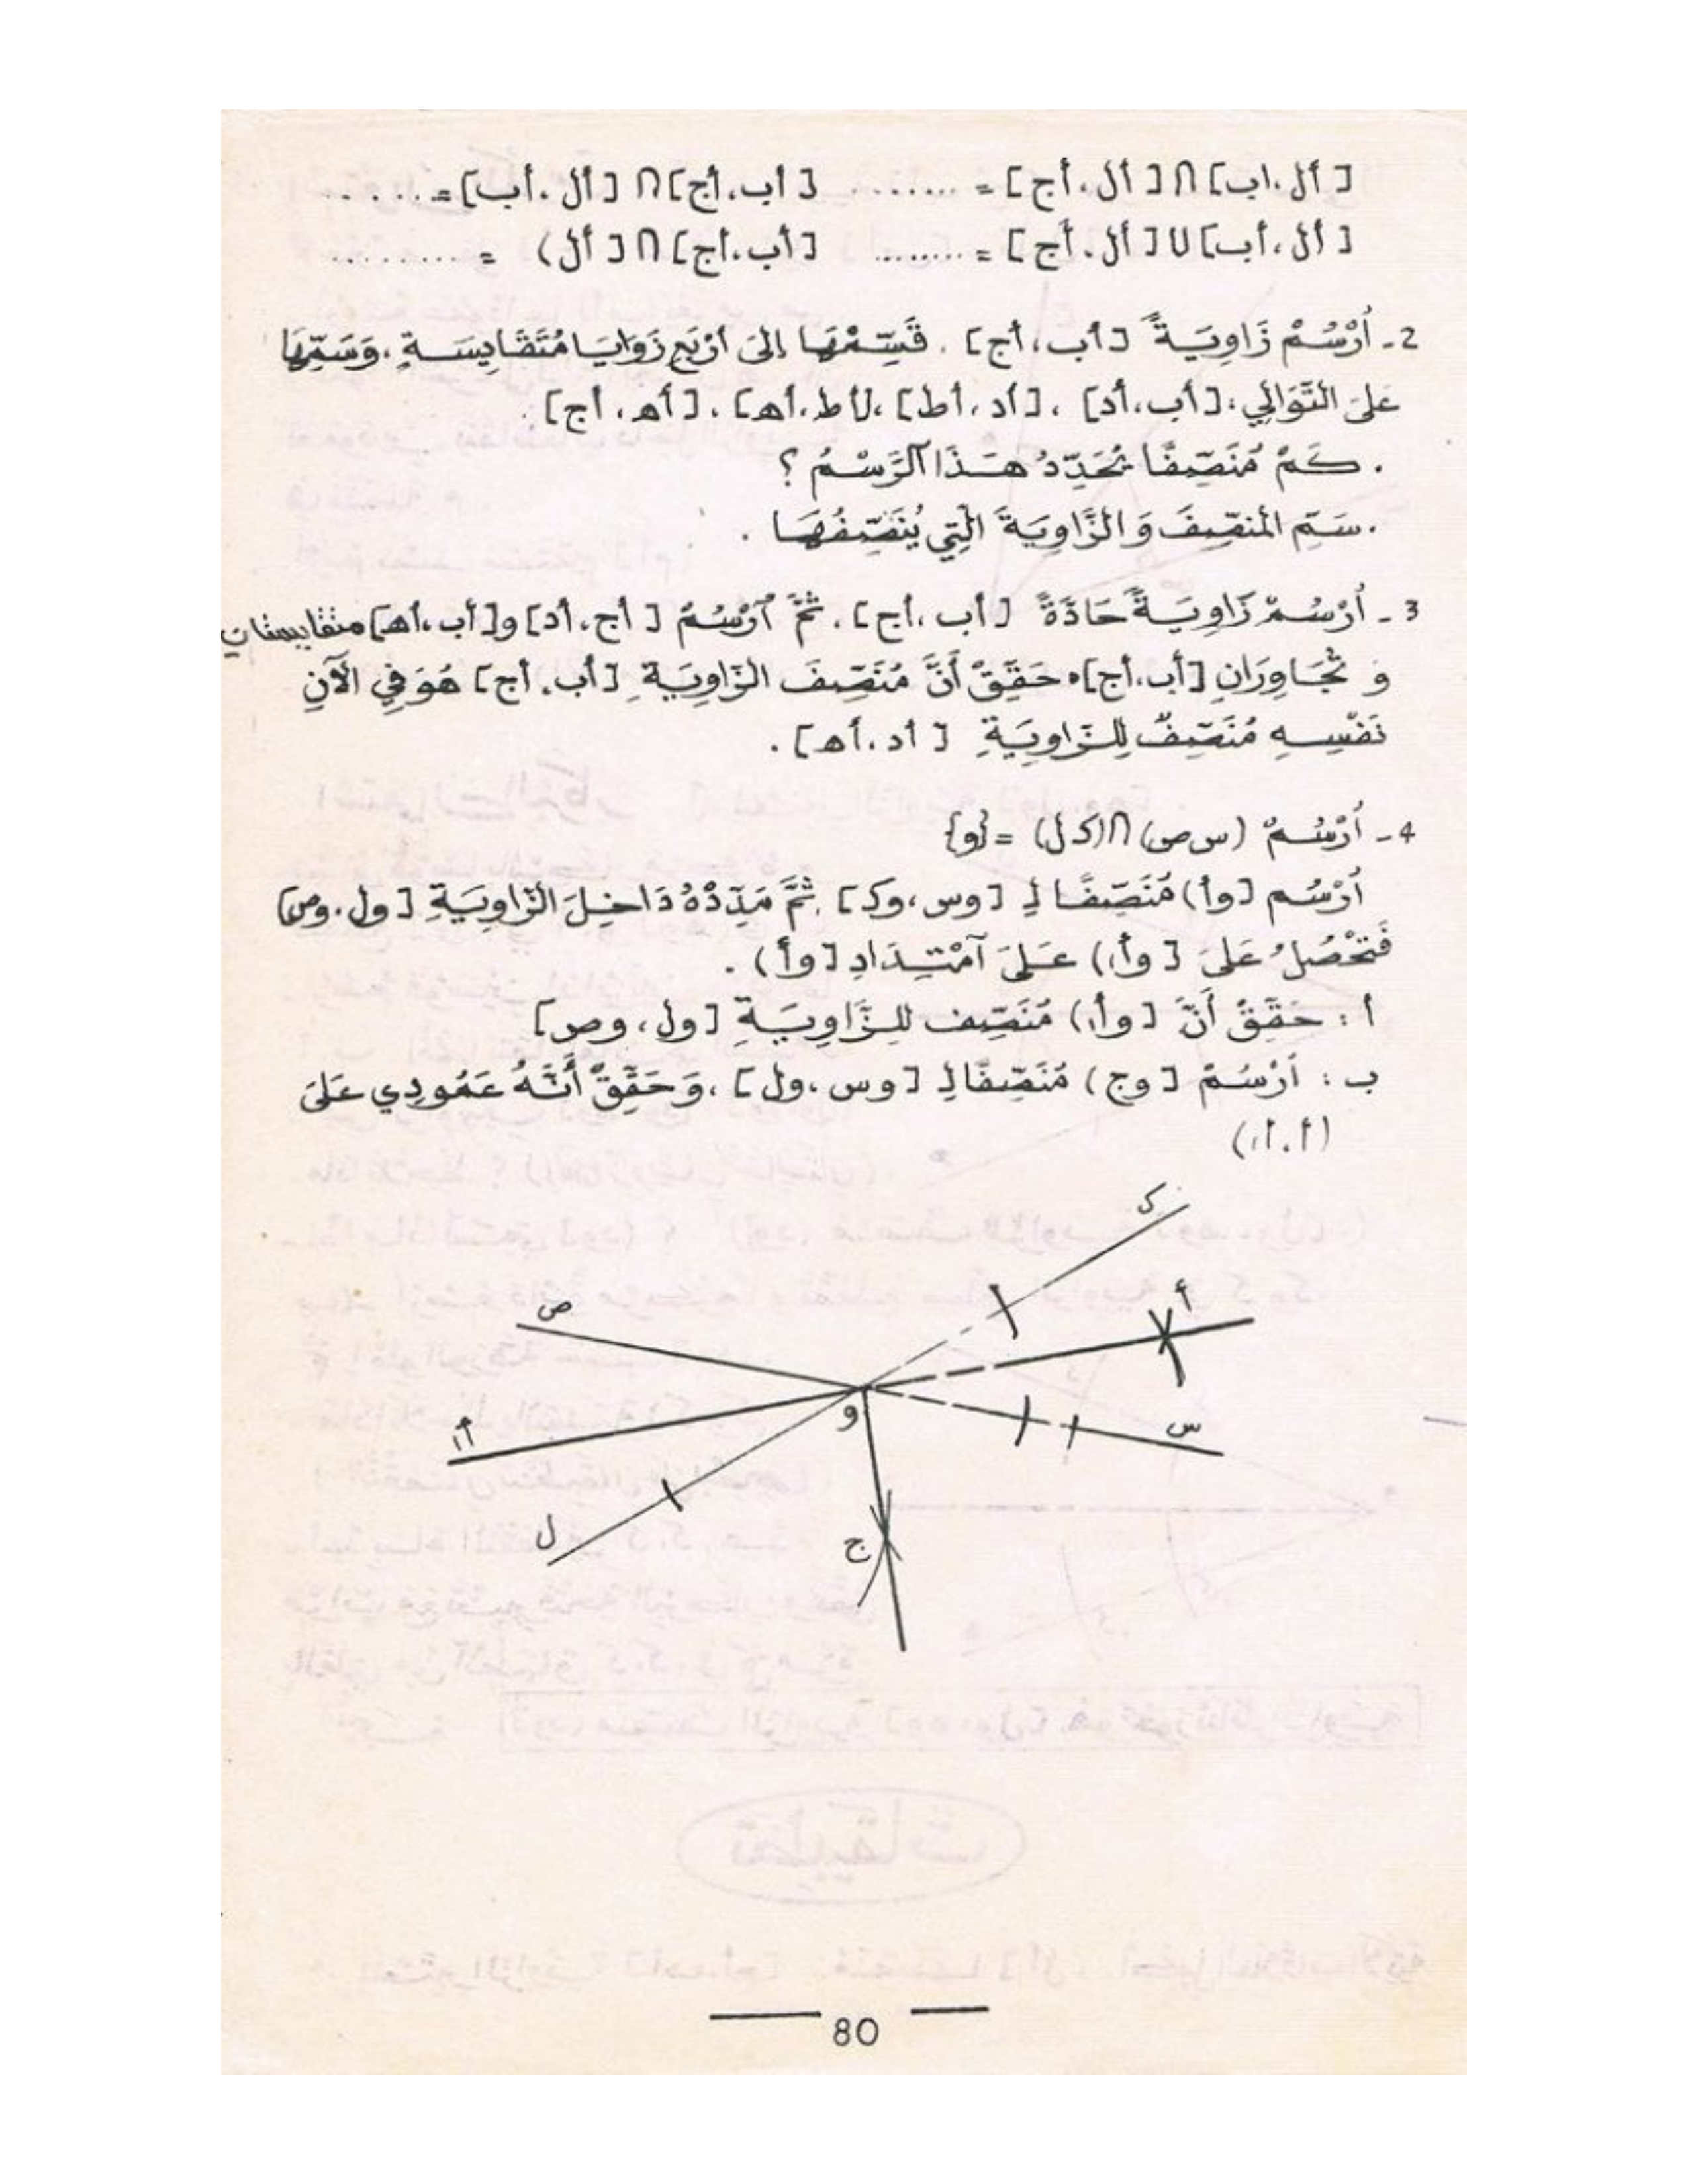 [أل،اب] ∩ [أل،أج] = ........ [أب،أج] ∩ [أل،أب] = ......
[أل،أب] U [أل،أج] = ........ [أب،أج] ∩ [أل) = .........
2 - اُرْسُمْ زَاوِيَةً [أب،أج] . قَسِّمْهَا إلىَ أرْبَعِ زَوَايَا مُتَقَايِسَةٍ، وَسَمِّهَا
عَلىَ التَّوَالِي: [أب،أد] ، [أد،أط] ، [أط،أهـ] ، [أهـ،أج] .
. كَمْ مُنَصِّفًا يُحَدِّدُ هَذَا الرَّسْمُ ؟
. سَمِّ المُنصِّفَ وَالزَّاوِيَةَ الَّتِي يُنَصِّفُهَا .
3 - اُرْسُمْ زَاوِيَةً حَادَّةً [أب،أج] . ثُمَّ اُرْسُمْ [أج،أد] و[أب،أهـ] متقايستان
وَ تُجَاوِرَانِ [أب،أج] . حَقِّقْ أَنَّ مُنَصِّفَ الزَّاوِيَةِ [أب،أج] هُوَ فِي الآنِ
نَفْسِهِ مُنَصِّفٌ لِلزَّاوِيَةِ [أد،أهـ] .
4 - اُرْسُمْ (س ص) ∩ (ك ل) = {و}
اُرْسُم [وأ) مُنَصِّفًا لِـ [وس،وك] . ثُمَّ مَدِّدْهُ دَاخِلَ الزَّاوِيَةِ [ول،وص]
فَتَحْصُلُ عَلىَ [وأ١) عَلىَ اَمْتِدَادِ [وأ) .
أ : حَقِّقْ أَنَّ [وأ١) مُنَصِّف للزَّاوِيَةِ [ول،وص]
ب : اُرْسُمْ [وج) مُنَصِّفًا لِـ [وس،ول] ، وَحَقِّقْ أَنَّهُ عَمُودِي عَلىَ
(أ.أ١)
ك
أ
ص
و
س
أ١
ل
ج
80